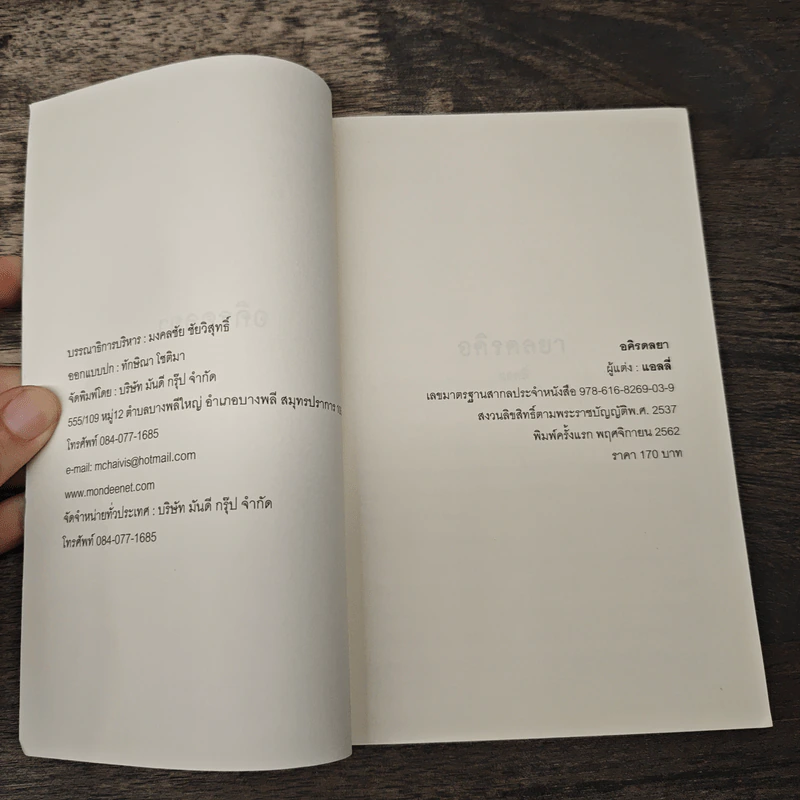 บรรณาธิการบริหาร : มงคลชัย ชัยวิสุทธิ์
ออกแบบปก : ทักษิณา โชติมา
จัดพิมพ์โดย : บริษัท มันดี กรุ๊ป จำกัด
555/109 หมู่12 ตำบลบางพลีใหญ่ อำเภอบางพลี สมุทรปราการ
โทรศัพท์ 084-077-1685
e-mail: mchaivis@hotmail.com
www.mondeenet.com
จัดจำหน่ายทั่วประเทศ : บริษัท มันดี กรุ๊ป จำกัด
โทรศัพท์ 084-077-1685
อคิรดลยา
ผู้แต่ง : แอลลี่
เลขมาตรฐานสากลประจำหนังสือ 978-616-8269-03-9
สงวนลิขสิทธิ์ตามพระราชบัญญัติพ.ศ. 2537
พิมพ์ครั้งแรก พฤศจิกายน 2562
ราคา 170 บาท